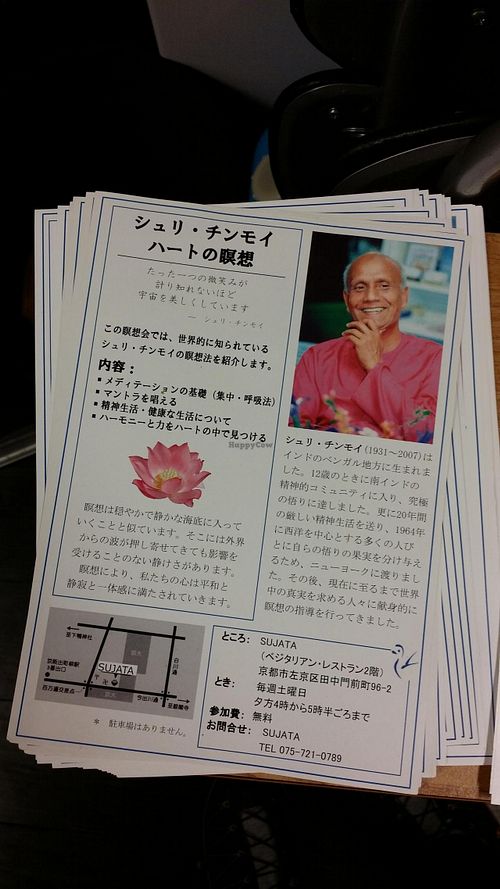 シュリ・チンモイ
ハートの瞑想
たった一つの微笑みが
計り知れないほど
宇宙を美しくしています
― シュリ・チンモイ
この瞑想会では、世界的に知られている
シュリ・チンモイの瞑想法を紹介します。
内容：
▪ メディテーションの基礎（集中・呼吸法）
▪ マントラを唱える
▪ 精神生活・健康な生活について
▪ ハーモニーと力をハートの中で見つける
HappyCow
瞑想は穏やかで静かな海底に入って
いくことと似ています。そこには外界
からの波が押し寄せてきても影響を
受けることのない静けさがあります。
瞑想により、私たちの心は平和と
静寂と一体感に満たされていきます。
シュリ・チンモイ(1931～2007)は
インドのベンガル地方に生まれま
した。12歳のときに南インドの
精神的コミュニティに入り、究極
の悟りに達しました。更に20年間
の厳しい精神生活を送り、1964年
に西洋を中心とする多くの人び
とに自らの悟りの果実を分け与え
るため、ニューヨークに渡りまし
た。その後、現在に至るまで世界
中の真実を求める人々に献身的に
瞑想の指導を行ってきました。
至下鴨神社
京大
白川通
京阪出町柳駅
SUJATA
百万遍交差点
今出川通
至銀閣寺
＊ 駐車場はありません。
ところ： SUJATA
（ベジタリアン・レストラン2階）
京都市左京区田中門前町96-2
とき： 毎週土曜日
夕方4時から5時半ごろまで
参加費： 無料
お問合せ： SUJATA
TEL 075-721-0789